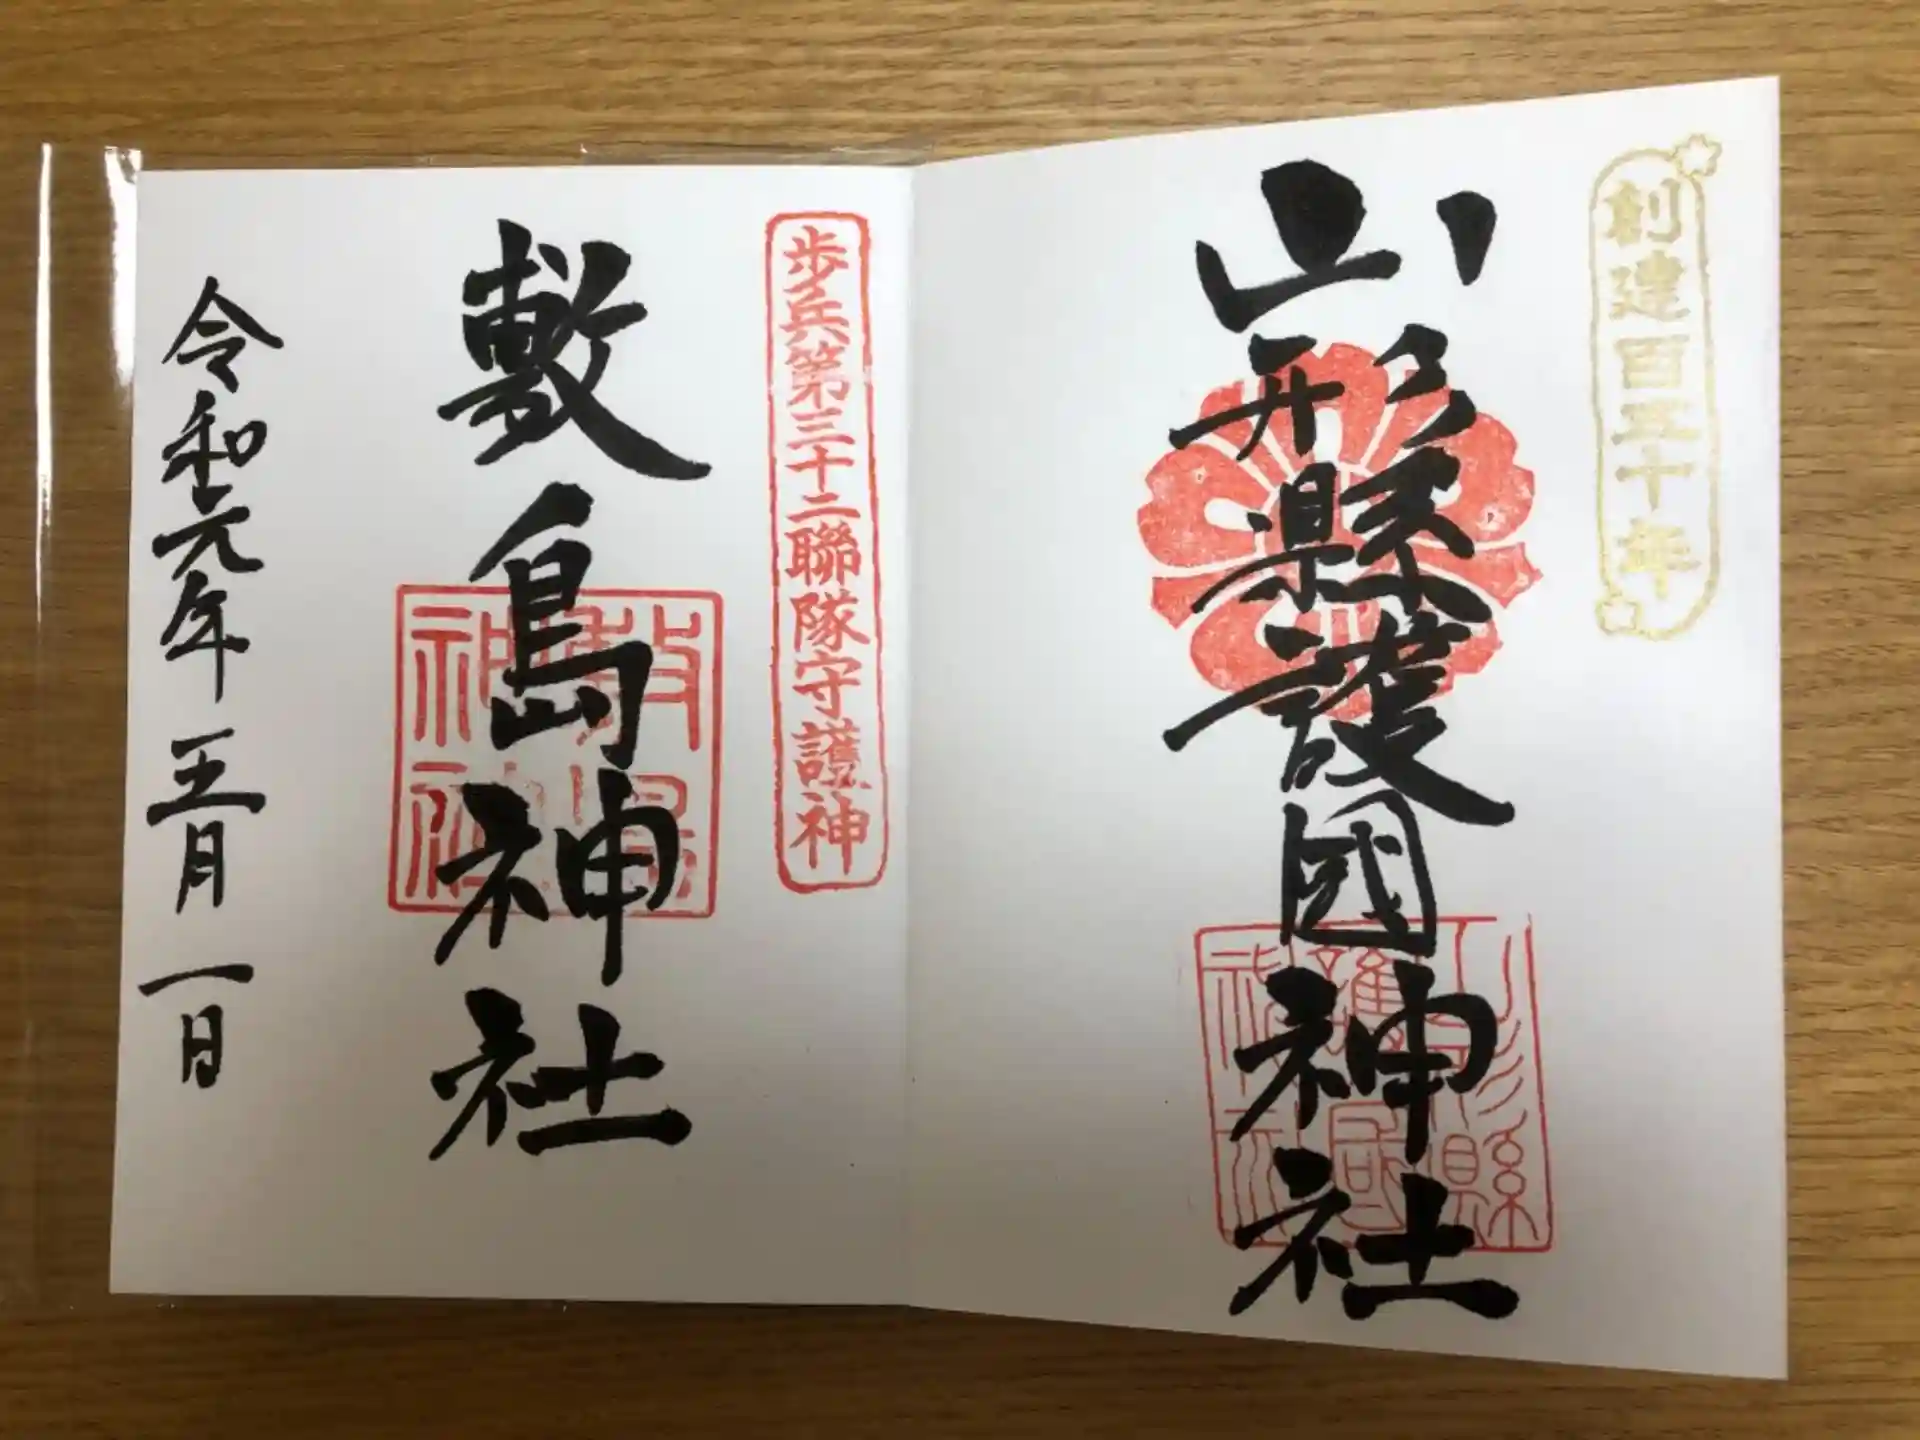 創建百五十年
山形縣護國神社
山形縣護國神社
歩兵第三十二聯隊守護神
敷島神社
敷島神社
令和元年五月一日